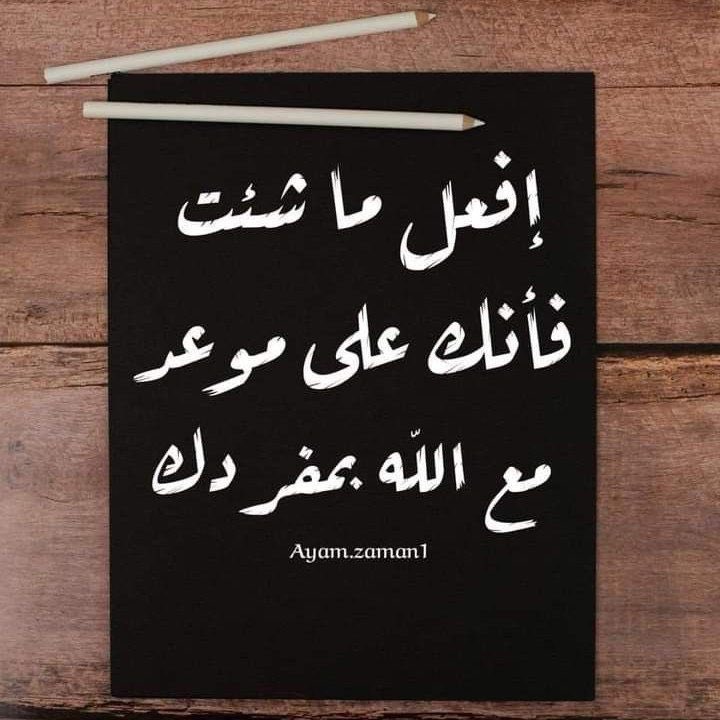 إفعل ما شئت
فأنك على موعد
مع الله بمفردك
Ayam.zaman1